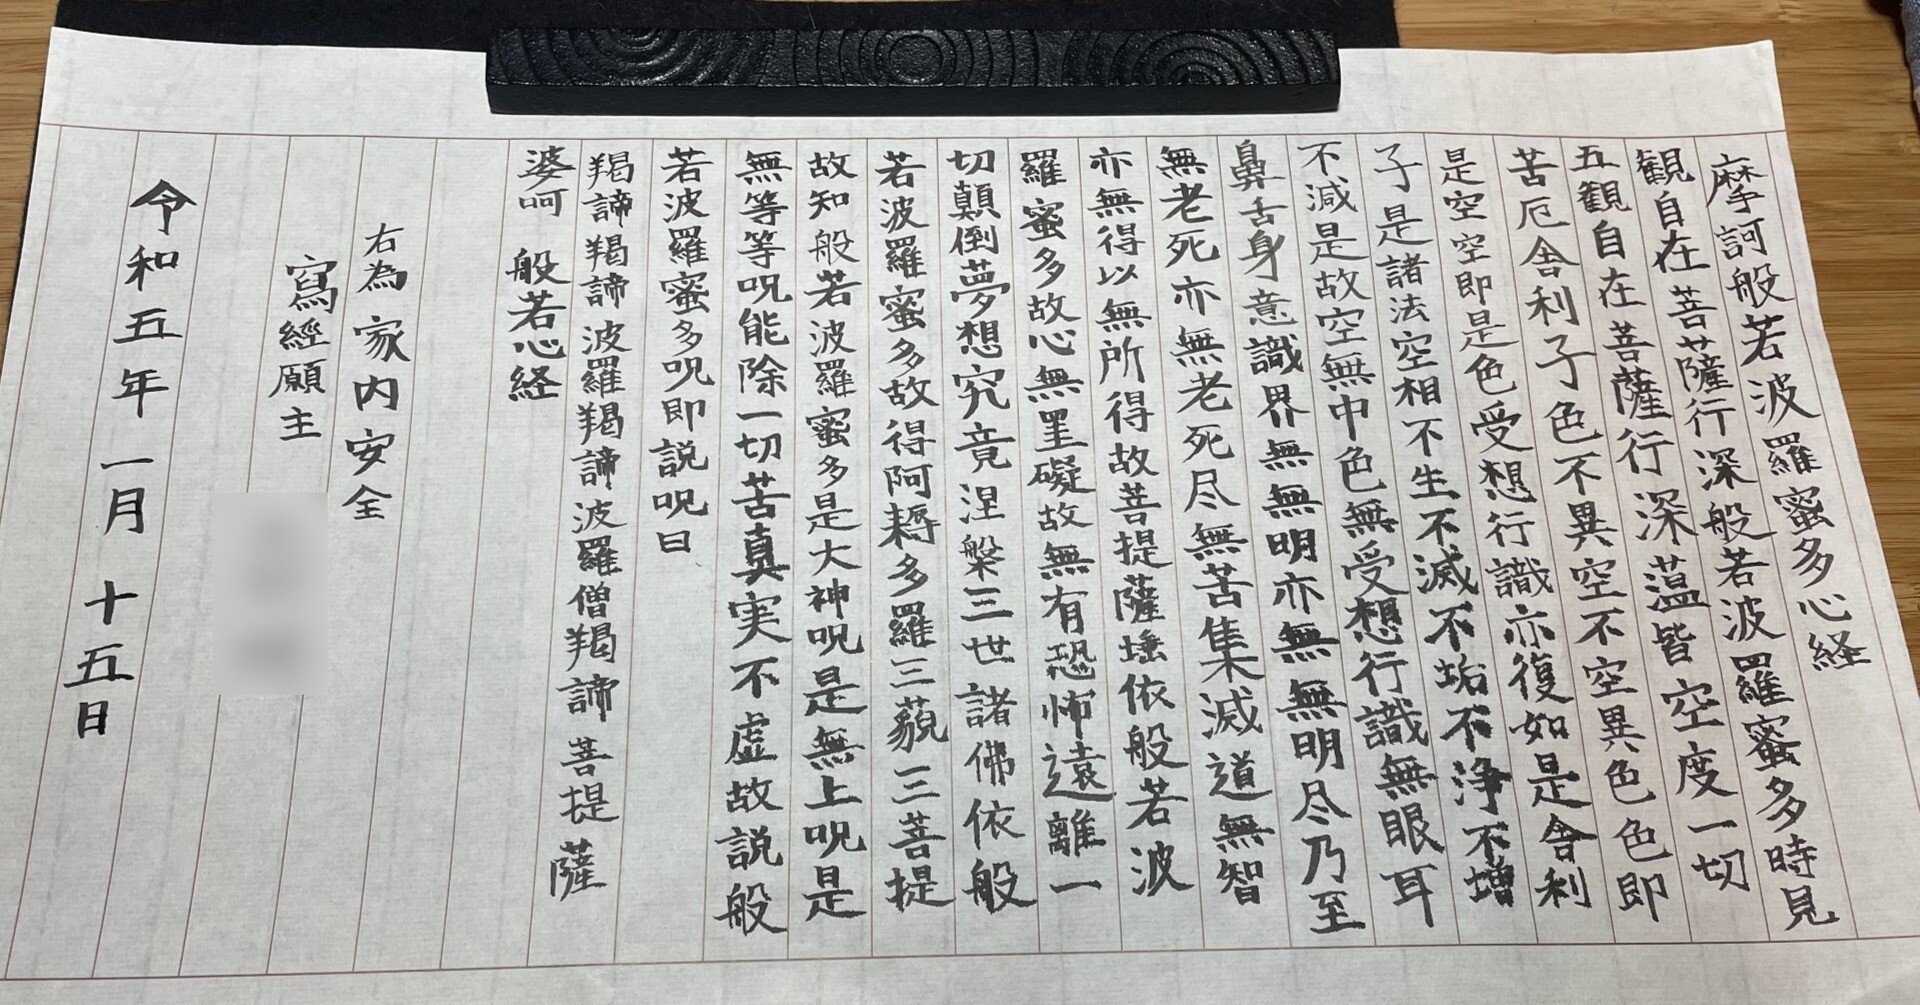 摩訶般若波羅蜜多心経
観自在菩薩行深般若波羅蜜多時見
五観自在菩薩行深蘊皆空度一切
苦厄舎利子色不異空不空異色色即
是空空即是色受想行識亦復如是舎利
子是諸法空相不生不滅不垢不浄不増
不減是故空無中色無受想行識無眼耳
鼻舌身意識界無無明亦無無明尽乃至
無老死亦無老死尽無苦集滅道無智
亦無得以無所得故菩提薩埵依般若波
羅蜜多故心無罣礙故無有恐怖遠離一
切顛倒夢想究竟涅槃三世諸佛依般
若波羅蜜多故得阿耨多羅三藐三菩提
故知般若波羅蜜多是大神呪是無上呪是
無等等呪能除一切苦真実不虚故説般
若波羅蜜多呪即説呪曰
羯諦羯諦波羅羯諦波羅僧羯諦菩提薩
婆呵 般若心経
右為家内安全
寫經願主
令和五年一月 十五日